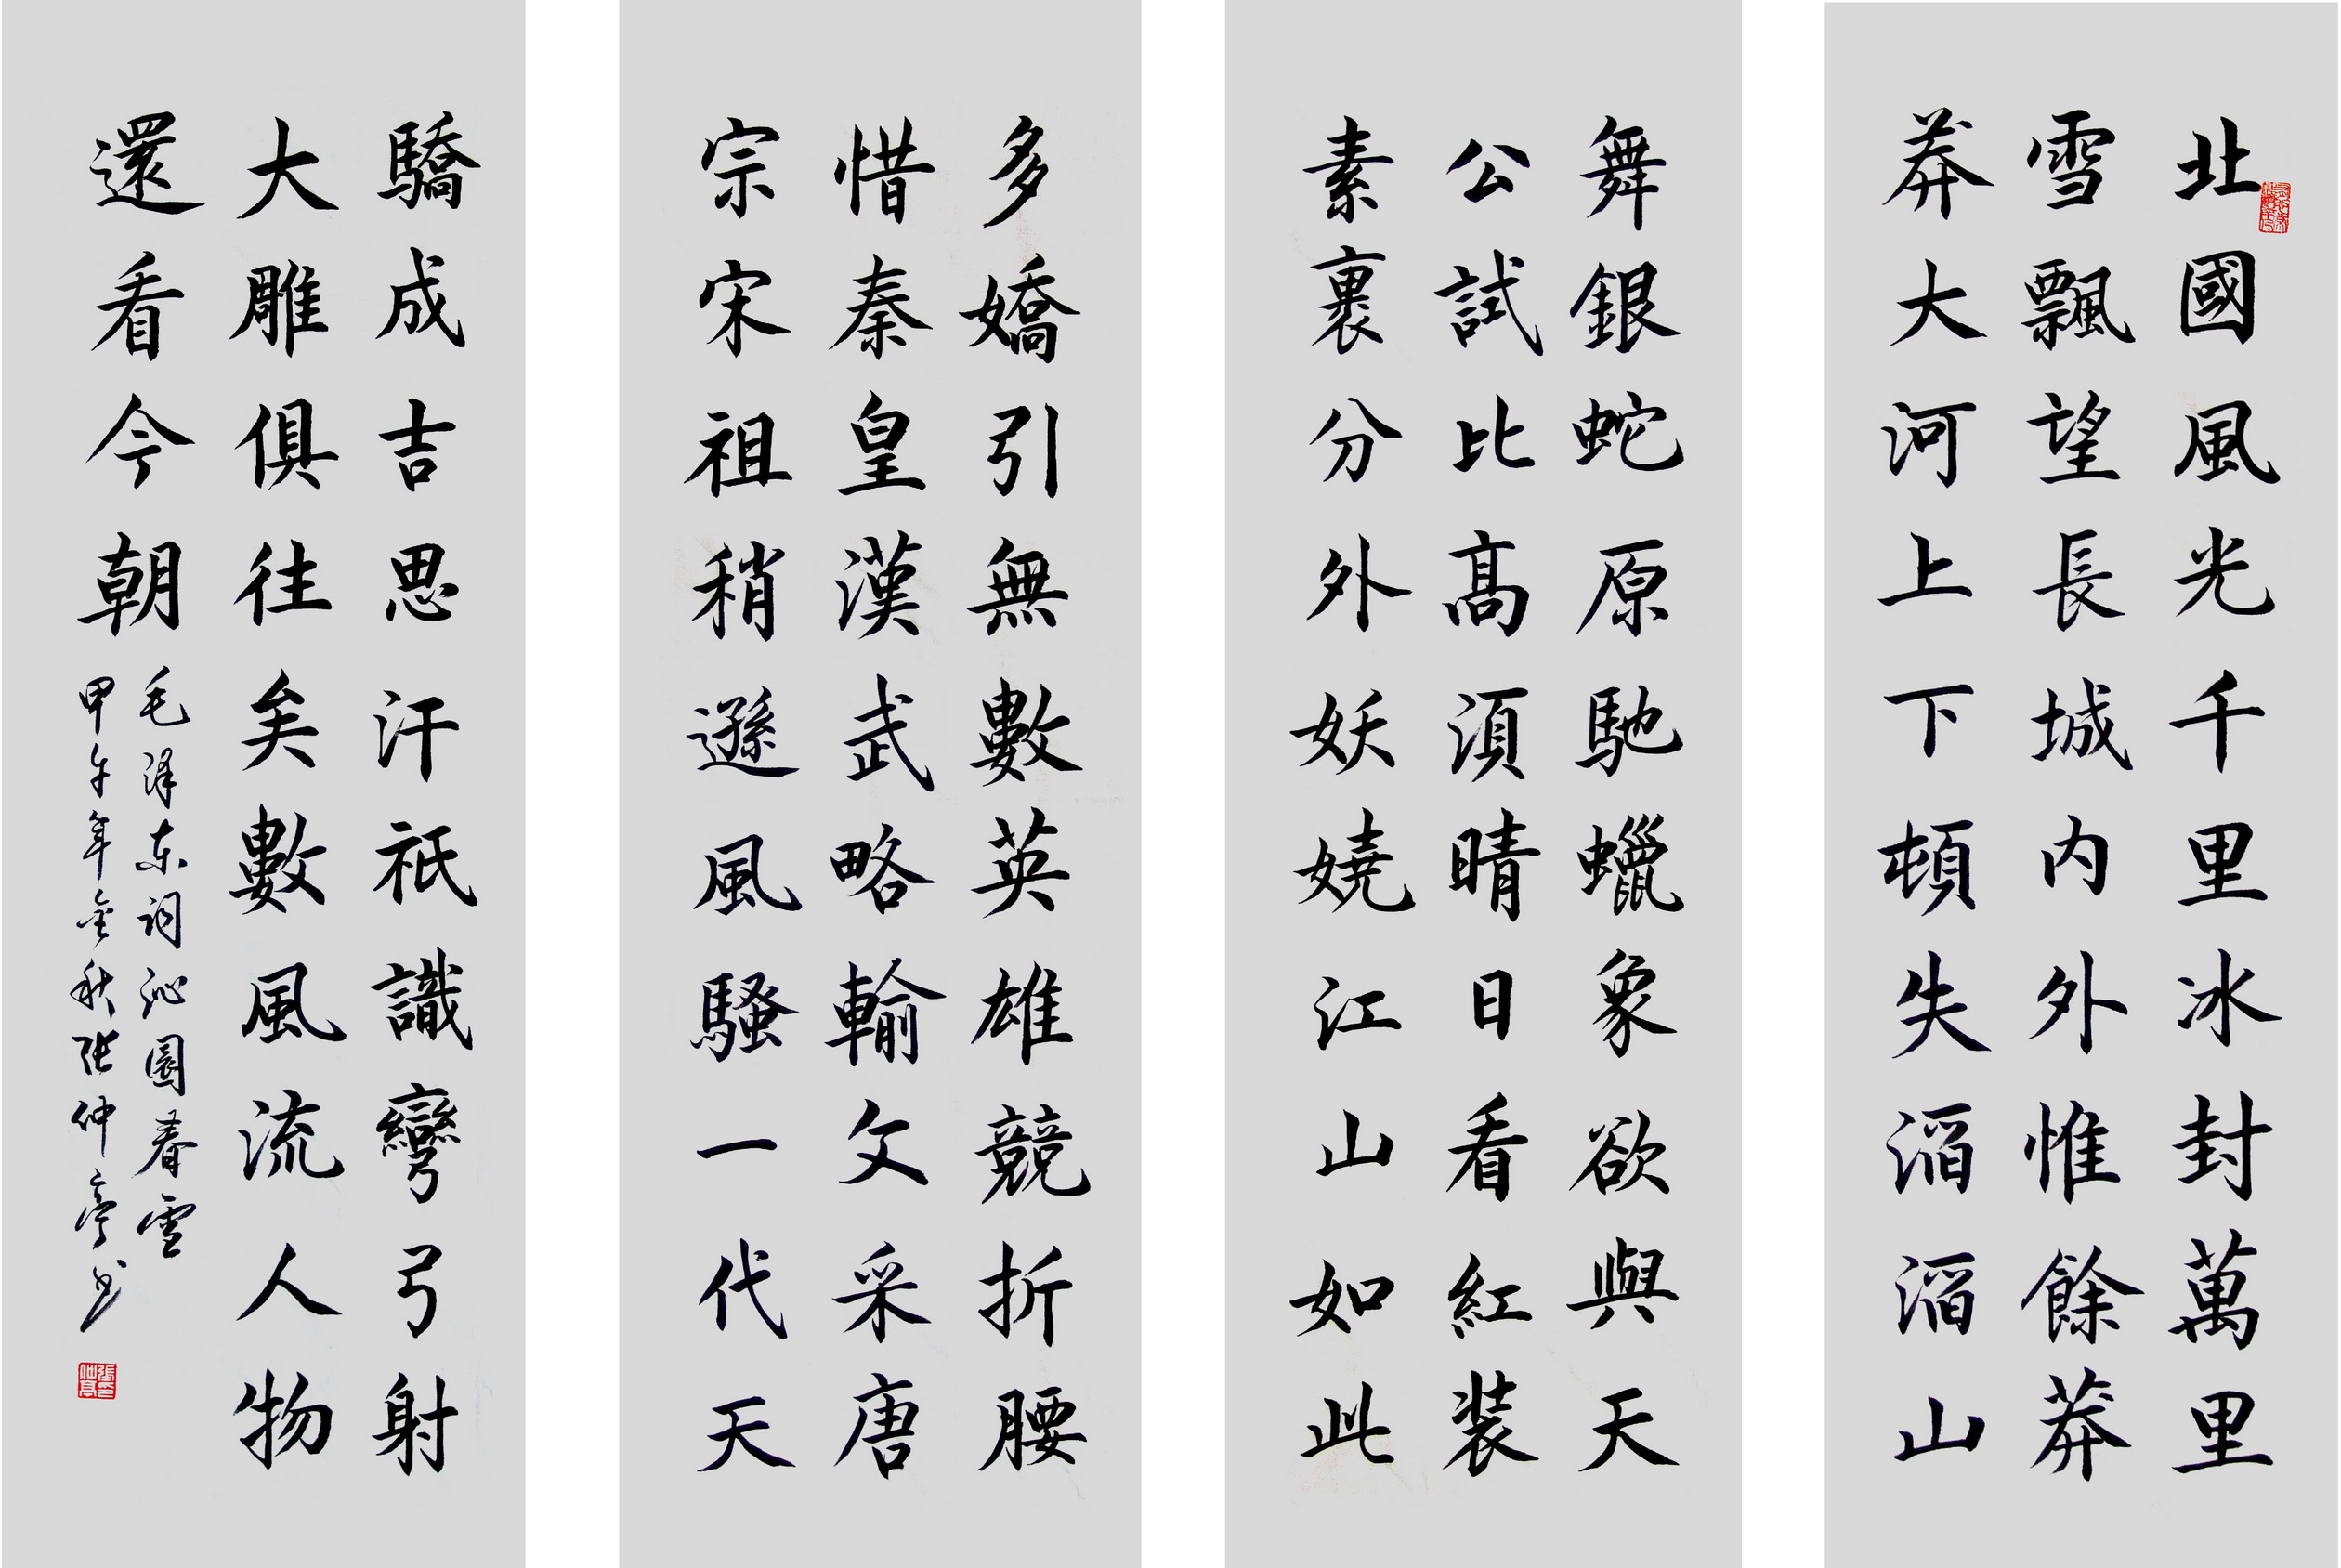 北國風光千里冰封萬里
雪飄望長城内外惟餘莽
莽大河上下頓失滔滔山
舞銀蛇原馳蠟象欲與天
公試比髙湏晴日看紅装
素裹分外妖娆江山如此
多嬌引無數英雄競折腰
惜秦皇漢武略輸文采唐
宗宋祖稍遜風騷一代天
驕成吉思汗祇識彎弓射
大雕俱往矣數風流人物
還看今朝
毛泽东词沁園春雪
甲午年金秋张仲亭书
張仲亭印